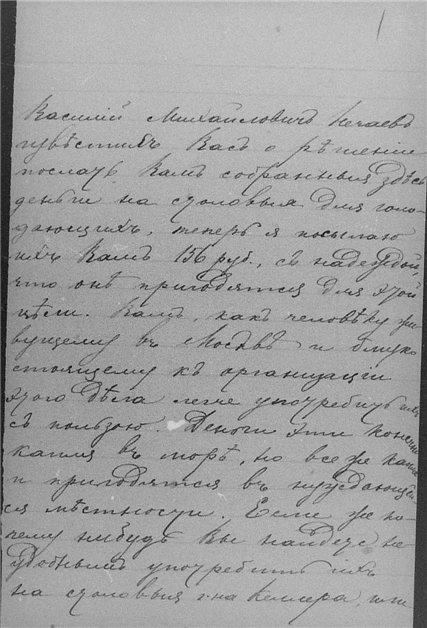 Василій Михайловичъ Нечаевъ
извѣстилъ Васъ о рѣшеніи
послать Вамъ собранныя здѣсь
деньги на столовыя для голо-
дающихъ, теперь я посылаю
ихъ Вамъ 156 руб., съ надеждой,
что онѣ пригодятся для этой
цѣли. Вамъ, какъ человѣку жи-
вущему въ Москвѣ и близко
стоящему къ организаціи
этого дѣла легче употребить ихъ
съ пользою. Деньги эти конечно
капля въ морѣ, но все же капля
и пригодятся въ нуждающей-
ся мѣстности. Если же по-
чему нибудь Вы найдете не
удобнымъ употребить ихъ
на столовыя г-на Келлера, или